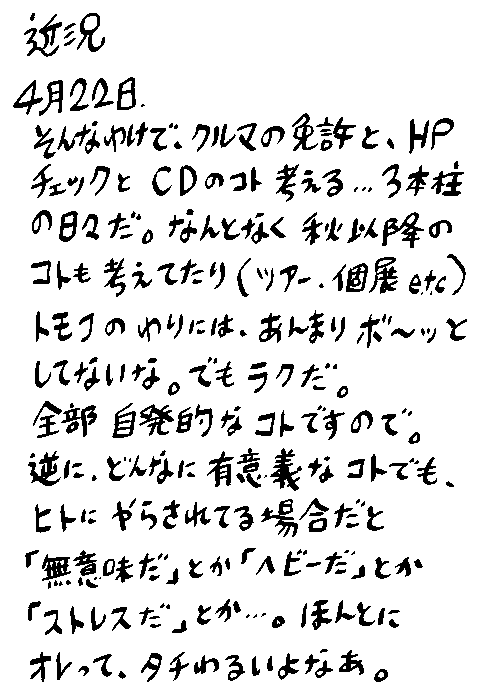 近況
4月22日.
そんなわけで、クルマの免許と、HP
チェックと CDのコト 考える…3本柱
の日々だ。なんとなく 秋以降の
コトも 考えてたり(ツアー、個展 etc)
トモフのわりには、あんまり ボ〜ッと
してないな。でも ラクだ。
全部 自発的な コトですので。
逆に、どんなに 有意義な コトでも、
ヒトに やらされてる場合だと
「無意味だ」とか「ヘビーだ」とか
「ストレスだ」とか…。ほんとに
オレって、タチわるいよなあ。